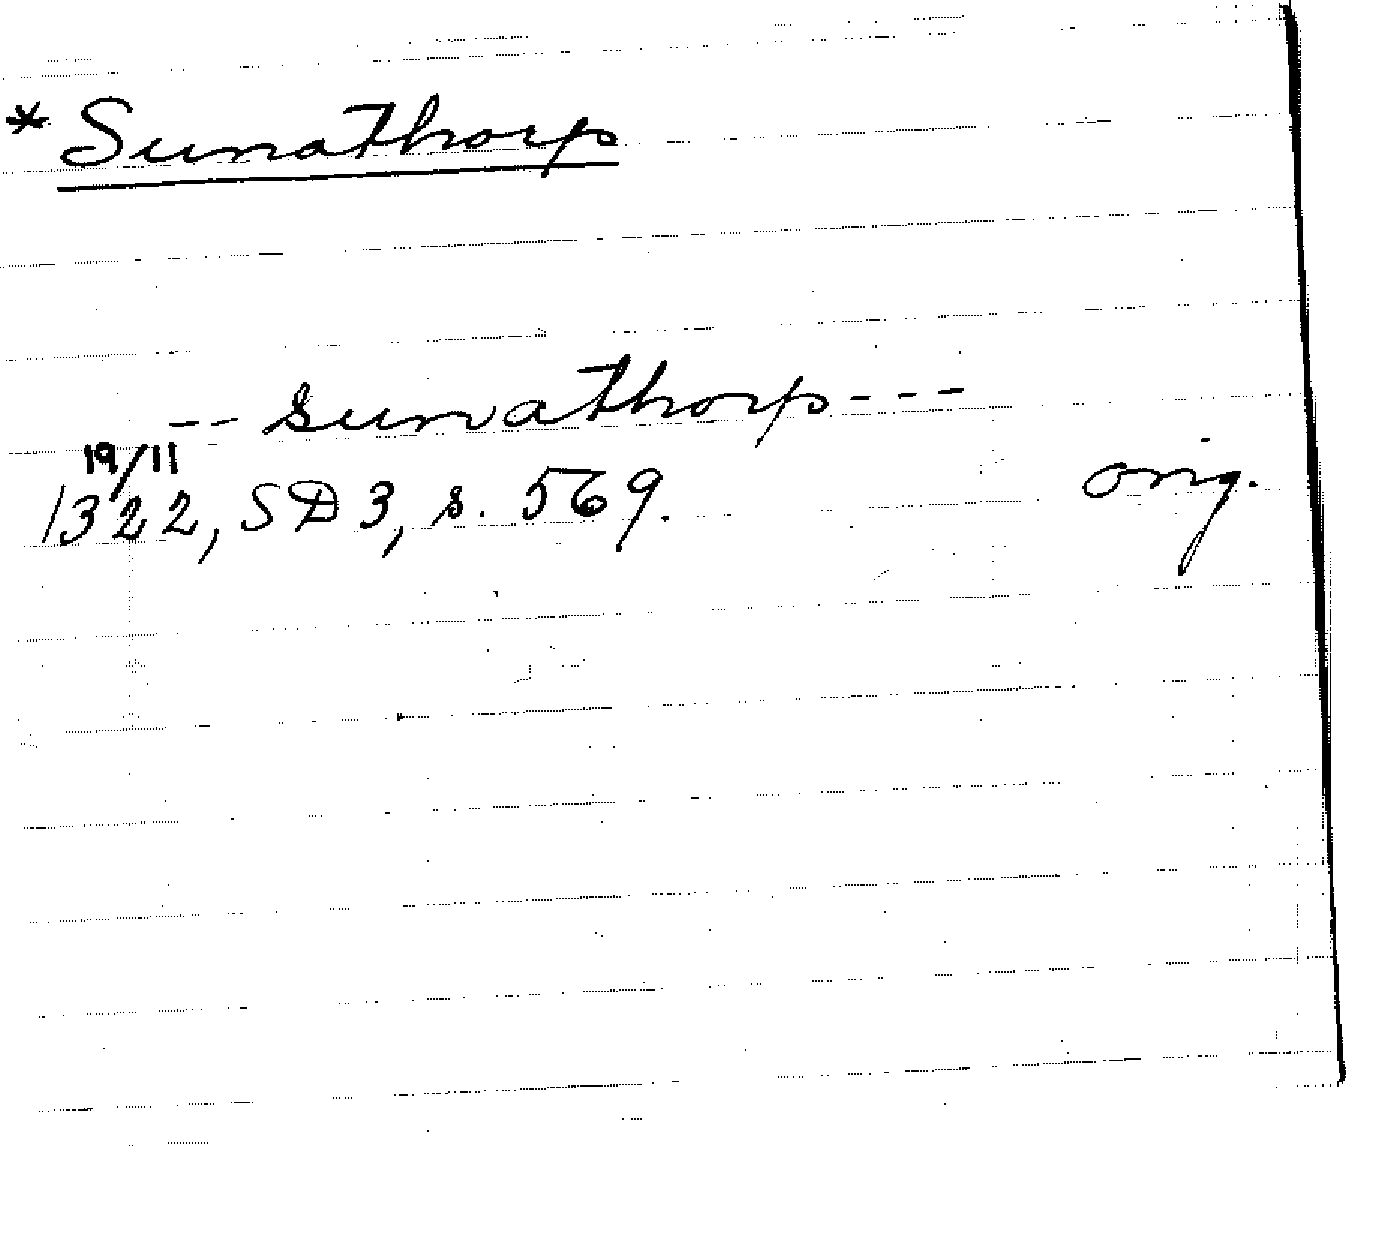 * Sunathorp
-- sunathorp ---
19/11
1322, SD 3, s. 569. orig.